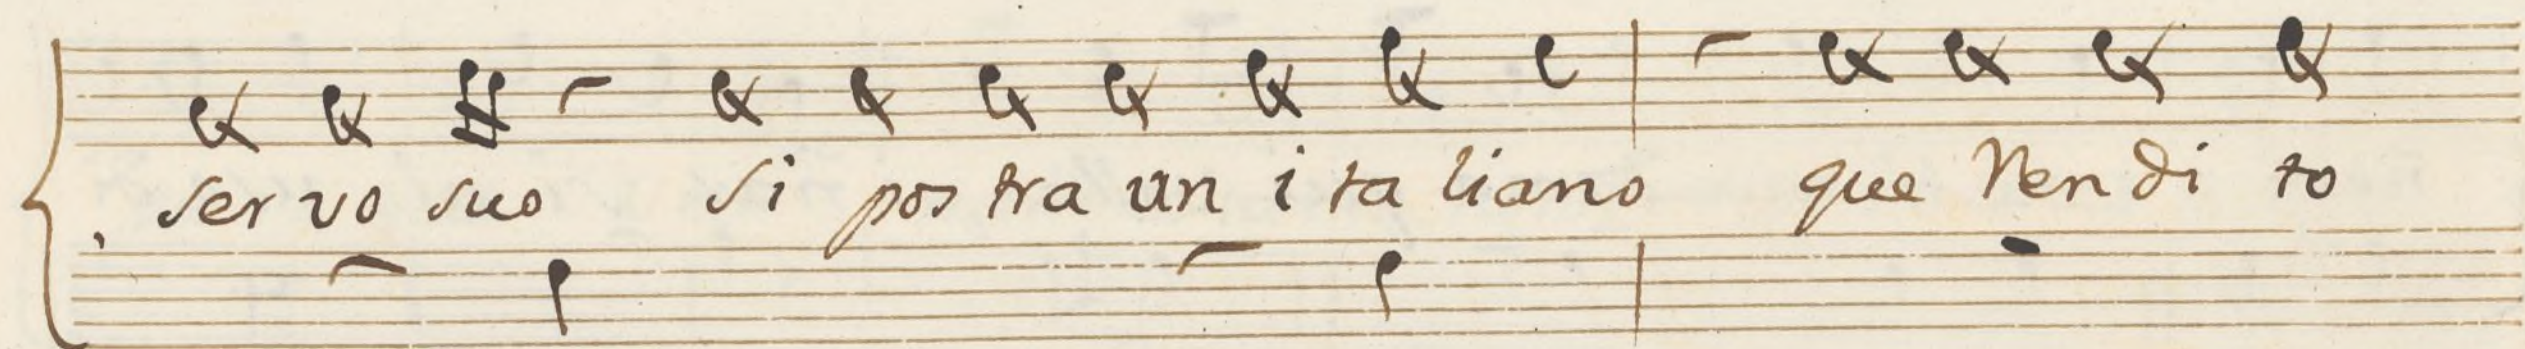 ser vo suo si pos tra un i ta liano que Ven di to